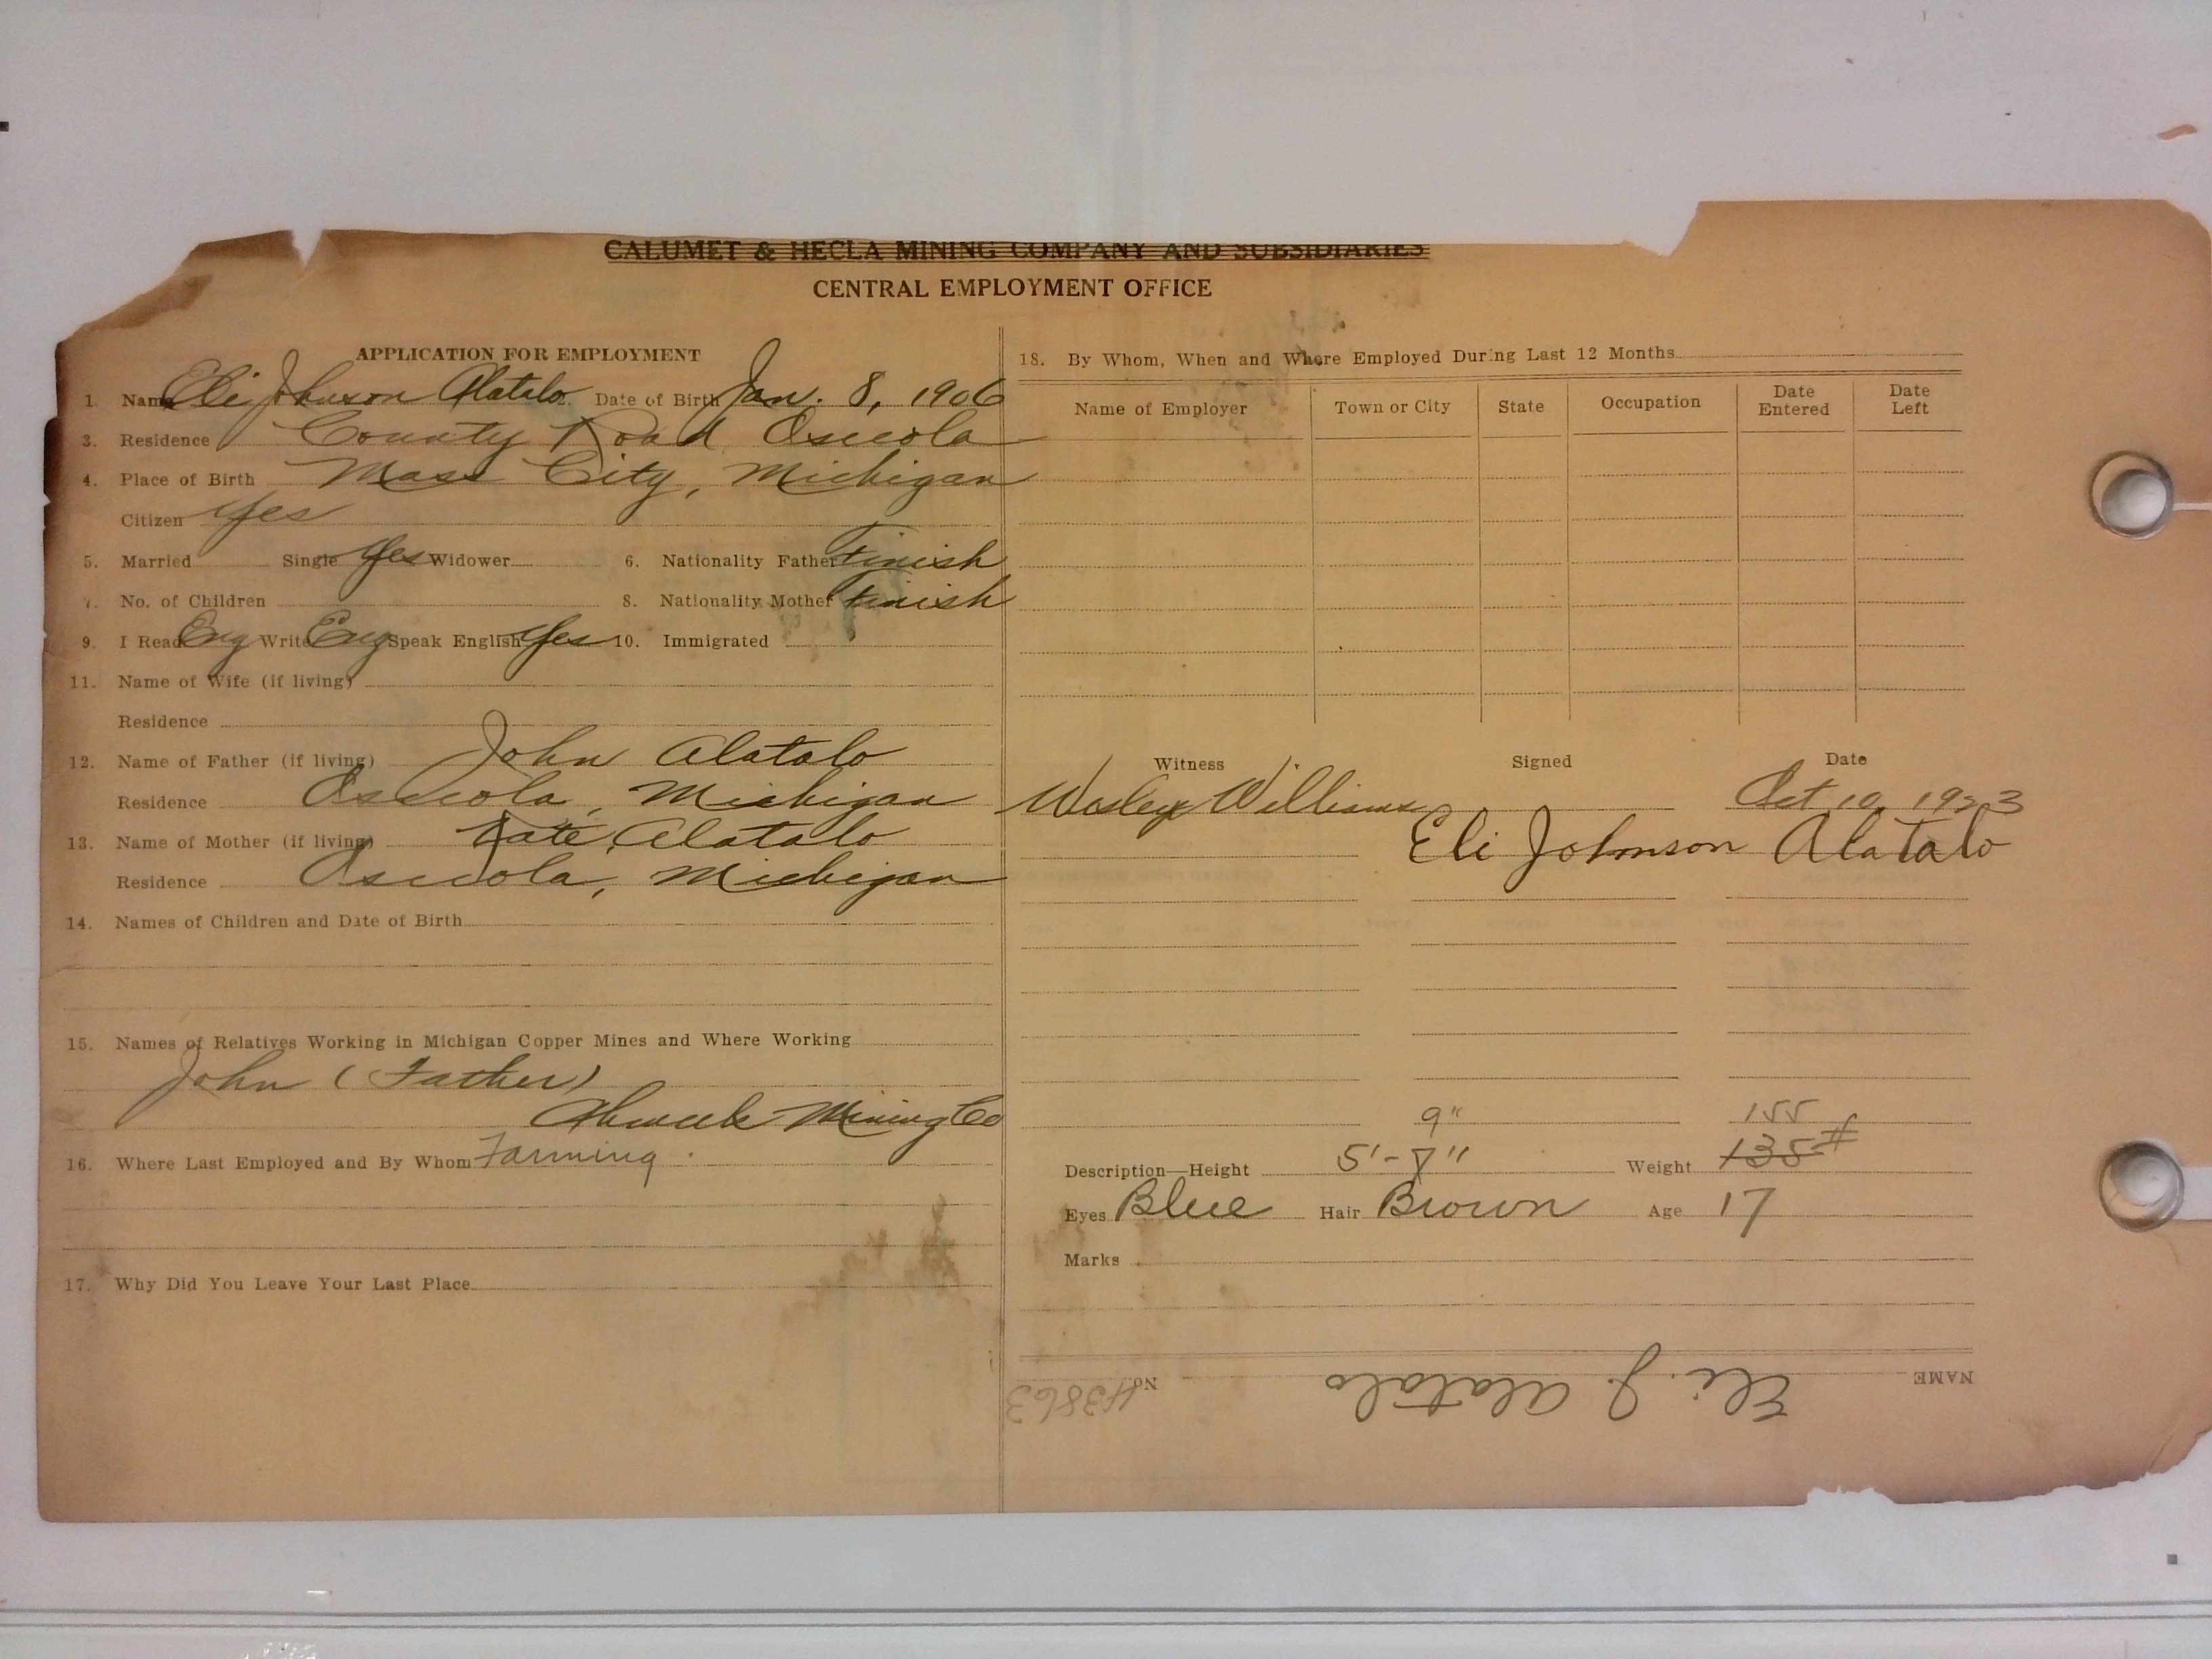 CALUMET & HECLA MINING COMPANY AND SUBSIDIARIES
CENTRAL EMPLOYMENT OFFICE
APPLICATION FOR EMPLOYMENT
1. Name Eli Johnson Alatalo Date of Birth Jan. 8, 1906
3. Residence County Road Osceola
4. Place of Birth Mass City, Michigan
Citizen Yes
5. Married Single Yes Widower 6. Nationality Father Finish
7. No. of Children 8. Nationality Mother Finish
9. I Read Eng Write Eng Speak English Yes 10. Immigrated
11. Name of Wife (if living)
Residence
12. Name of Father (if living) John Alatalo
Residence Osceola, Michigan
13. Name of Mother (if living) Kate Alatalo
Residence Osceola, Michigan
14. Names of Children and Date of Birth
15. Names of Relatives Working in Michigan Copper Mines and Where Working
John (Father)
Ahmeek Mining Co
16. Where Last Employed and By Whom Farming.
17. Why Did You Leave Your Last Place
18. By Whom, When and Where Employed During Last 12 Months
Name of Employer Town or City State Occupation Date Entered Date Left
Witness Signed Date
Wesley Williams Oct 10, 1923
Eli Johnson Alatalo
9" 155
Description—Height 5'-7" Weight 135#
Eyes Blue Hair Brown Age 17
Marks
NAME Eli. J. Alatalo No. 43863